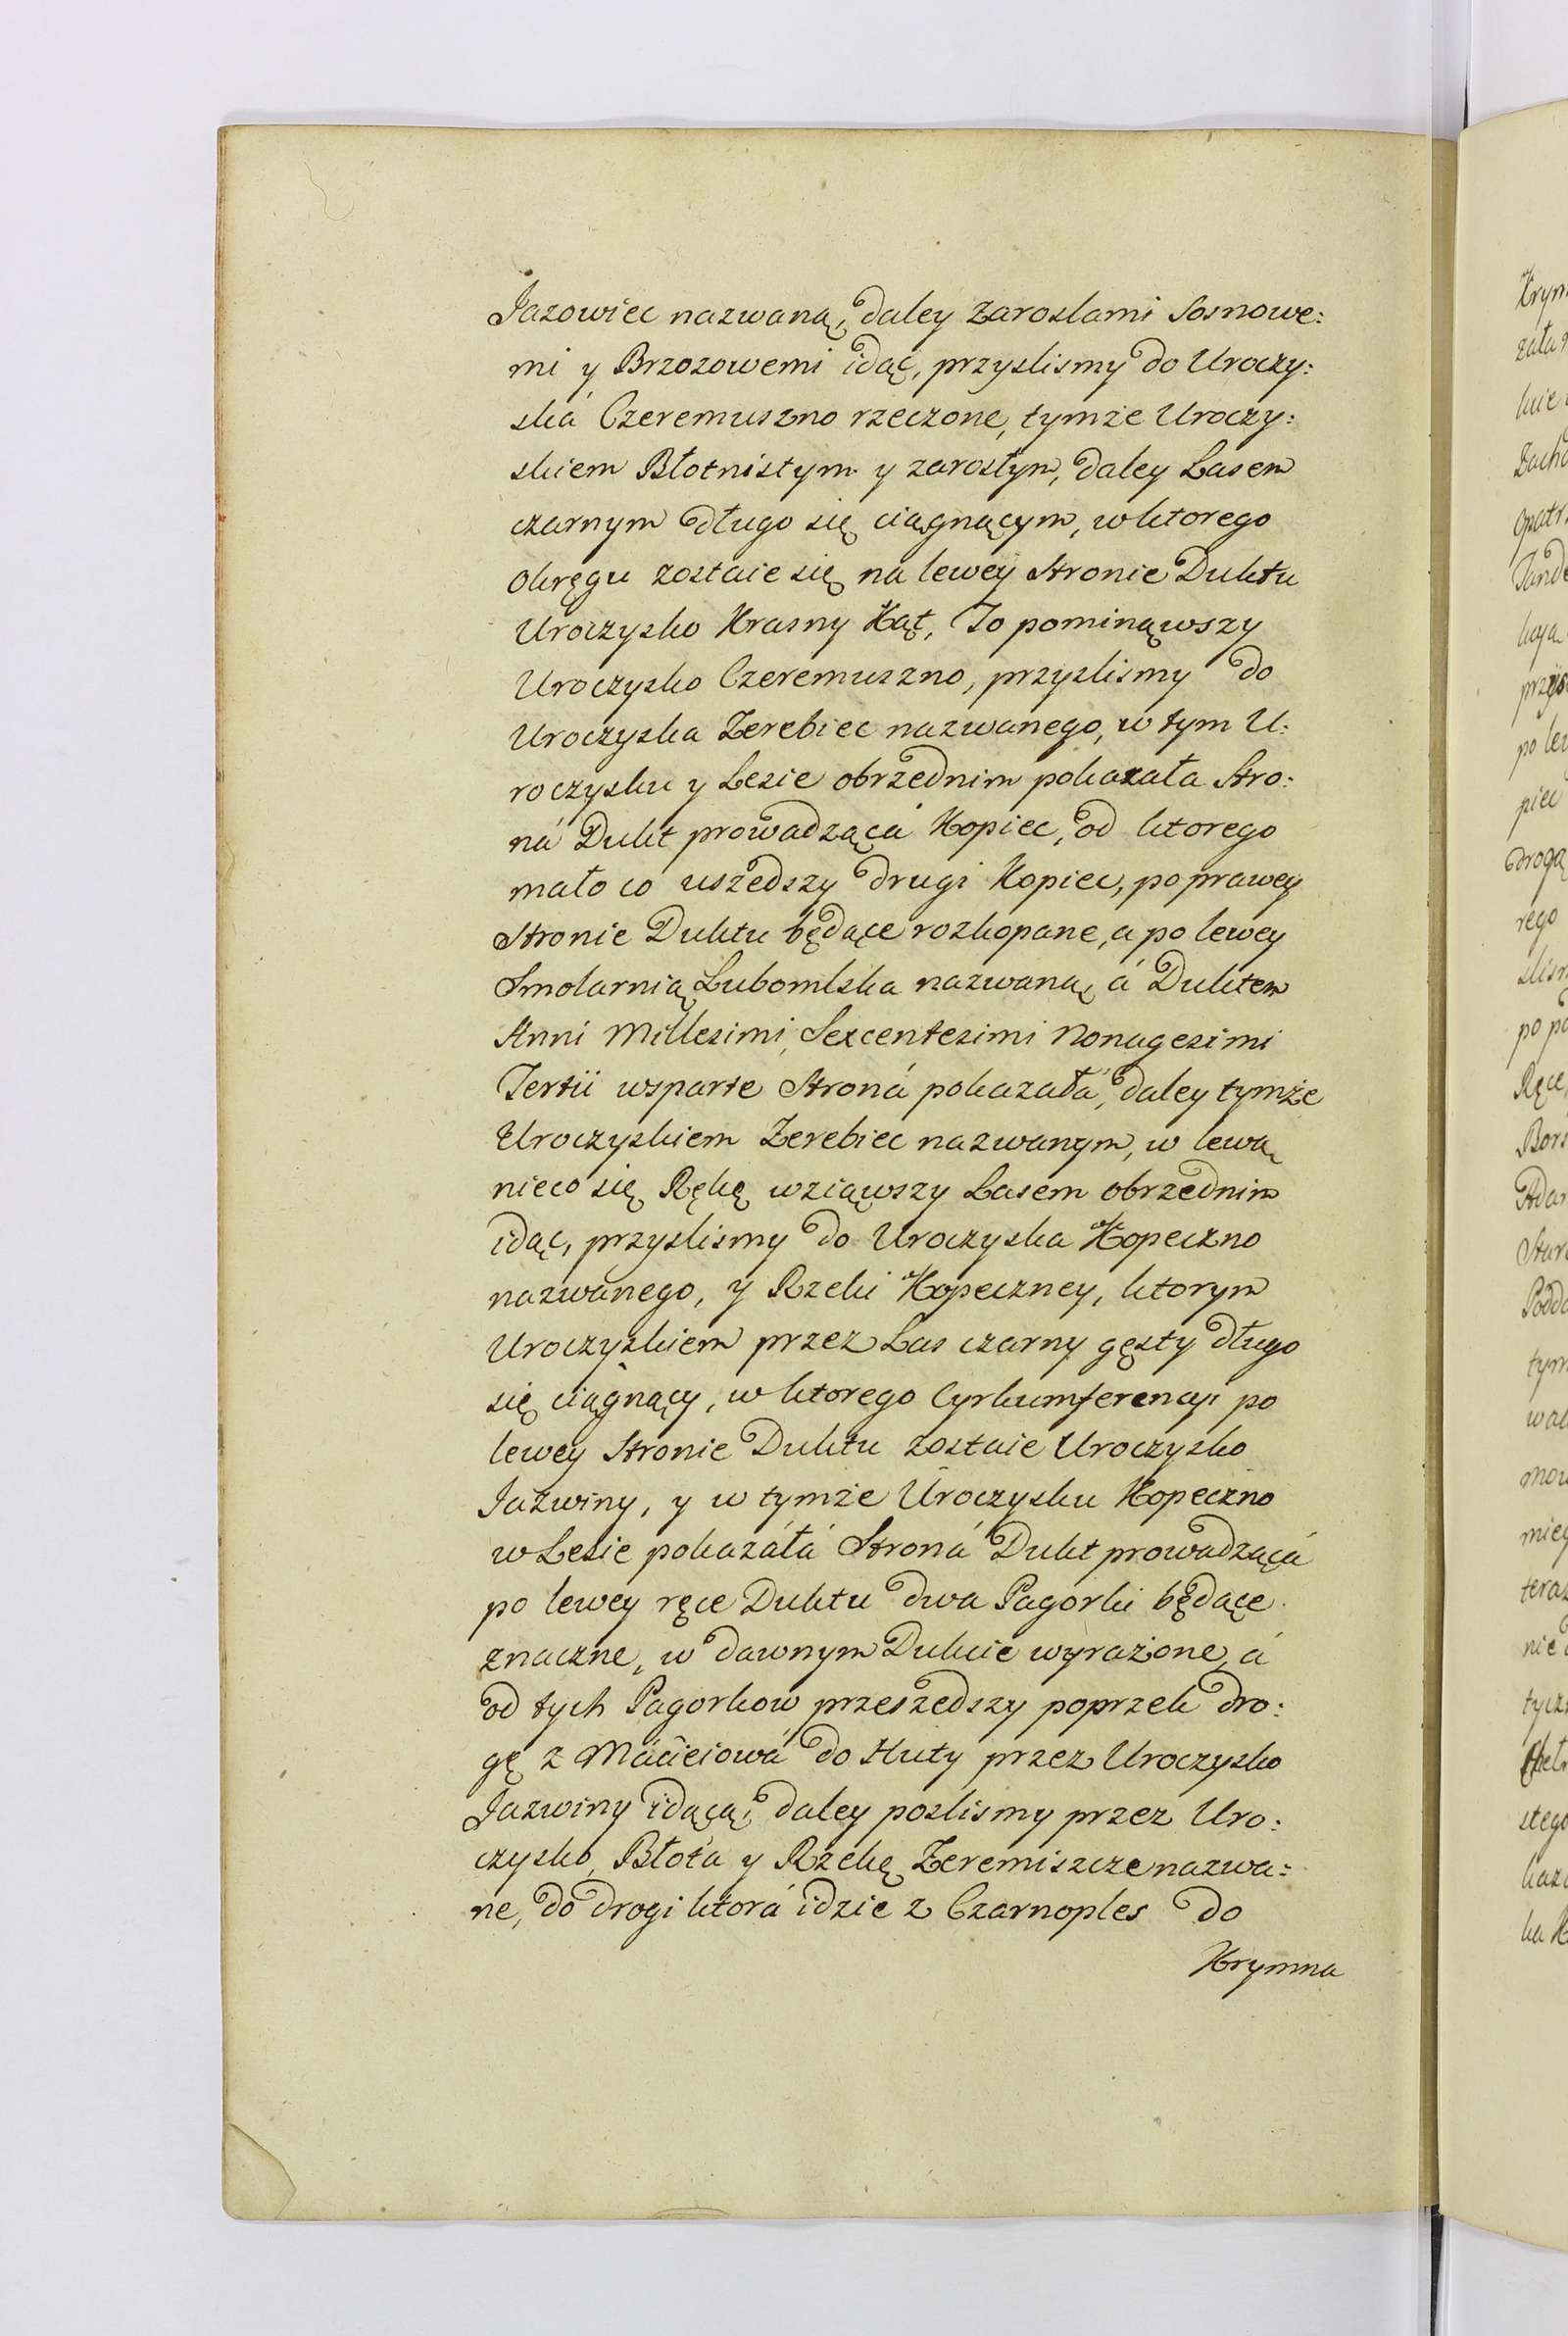 Jazowiec nazwaną, daley Zaroslami Sosnowe:
mi y Brzozowemi idąć, przyslismy do Uroczy:
ská Czeremuszno rzeczone, tymże Uroczy:
skiem Błotnistym y zarosłym, daley Lasem
czarnym długo się ciągnącym, w ktorego
okręgu zostaie się na lewey Stronie Duktu
Uroczysko Krasny Kąt, To pominąwszy
Uroczysko Czeremuszno, przyslismy do
Uroczyska Zerebiec nazwanego, w tym U:
roczysku y Lesie obrzednim pokazała Stro:
ná Dukt prowadząca Kopiec, od ktorego
mało co uszedszy drugi Kopiec, po prawey
Stronie Duktu będące rozkopane, a po lewey
Smolarnią Lubomlska nazwaną, á Duktem
Anni Millesimi, Sexcentesimi Nonagesimi
Tertii wsparte Stroná pokazałá, daley tymże
Uroczyskiem Zerebiec nazwanym, w lewą
nieco się Rękę wziąwszy Lasem obrzednim
idąc, przyslismy do Uroczyska Kopeczno
nazwanego, y Rzeki Kopeczney, ktorym
Uroczyskiem przez Las czarny gęsty długo
się ciągnący, w ktorego Cyrkumferencyi po
lewey Stronie Duktu zostaie Uroczysko
Jaźwiny, y w tymże Uroczysku Kopeczno
w Lesie pokazáłá Stroná Dukt prowadzącá
po lewey ręce Duktu dwa Pagorki będące
znaczne, w dawnym Dukcie wyrażone, á
od tych Pagorkow przeszedszy poprzek dro:
gę z Máćieiowá do Huty przez Uroczysko
Jazwiny idącą, daley poslismy przez Uro:
czysko, Błota y Rzekę Zeremiszcze nazwa:
ne, do drogi ktorá idzie z Czarnoples do
Krymna